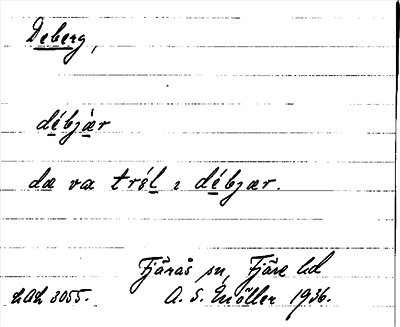 Deberg,
débjàr
da va tról i débjar.
Fjärås sn, Fjäre hd
LAL 3055. A. S. Möller 1936.